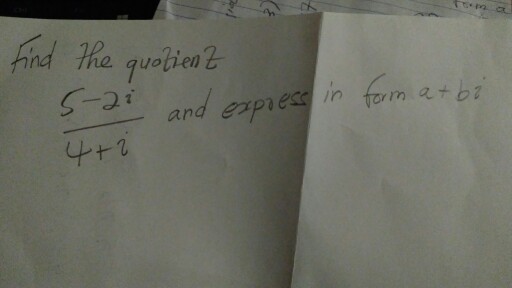 Find the quotient
5-2i
4+i
and express in form a+bi